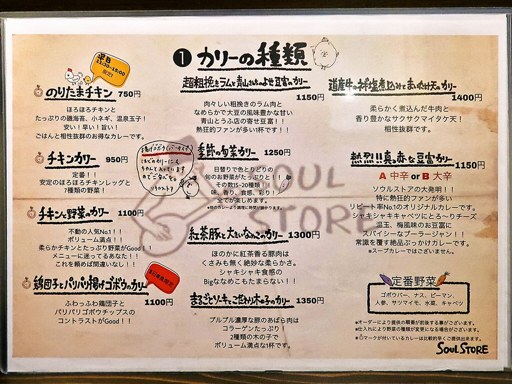 ❶ カリーの種類
平日
11:30~15:00
限定!!
のりたまチキン 750円
ほろほろチキンと
たっぷりの磯海苔、小ネギ、温泉玉子!
安い!早い!旨い!
ごはんと相性抜群のお得なカリーです。
チキンカリー 950円
定番!!
安定のほろほろチキンレッグと
王道のカリーです。
チキンと野菜のカリー 1100円
不動の人気No1!!
ボリューム満点!!
柔らかチキンとたっぷり野菜がGood!!
メニューに迷ってるあなた!!
これを頼めば間違いなし!!
鶏団子とパリパリ揚げゴボウのカリー
1100円
ふわっふわ鶏団子と
パリパリゴボウチップスの
コントラストがGood!!
超粗挽きラムと青山さんのよせ豆富のカリー
1250円
肉々しい粗挽きのラム肉と
なめらかで大豆の風味豊かな甘い
青山とうふ店の寄せ豆富!!
熱狂的ファンが多い1杯です!!
季節の旬菜カリー 1250円
日替りで色とりどりの
旬のお野菜がたっぷりと!!
その数15-20種類!
味、香り、食感、彩り!
全てが楽しめます。
紅茶豚と大きいなめこのカリー
1300円
ほのかに紅茶香る豚肉は
くさみも無く絶妙な柔らかさ。
シャキシャキ食感の
Bigななめこもたまらない!!
まるごとソーキ、こだわり木の子のカリー 1350円
プルプル濃厚な豚のあばら肉は
コラーゲンたっぷり
2種類の木の子で
ボリューム満点な1杯です。
1400円
柔らかく煮込んだ牛肉と
香り豊かなサクサクマイタケ天!
相性抜群です。
熱烈!!真っ赤な豆富カリー 1150円
A 中辛 or B 大辛
ソウルストアの大発明!!
特に熱狂的ファンが多い
リピート率No1のオリジナルカレーです。
シャキシャキキャベツにとろ~りチーズ
温玉、梅風味のお豆富に
スパイシーなブーラージャン!!
常識を覆す絶品ぶっかけカレーです。
※スープカレーではございません。
定番野菜
ゴボウバー、ナス、ピーマン、
人参、サツマイモ、水菜、キャベツ
SOUL STORE
SOUL STORE